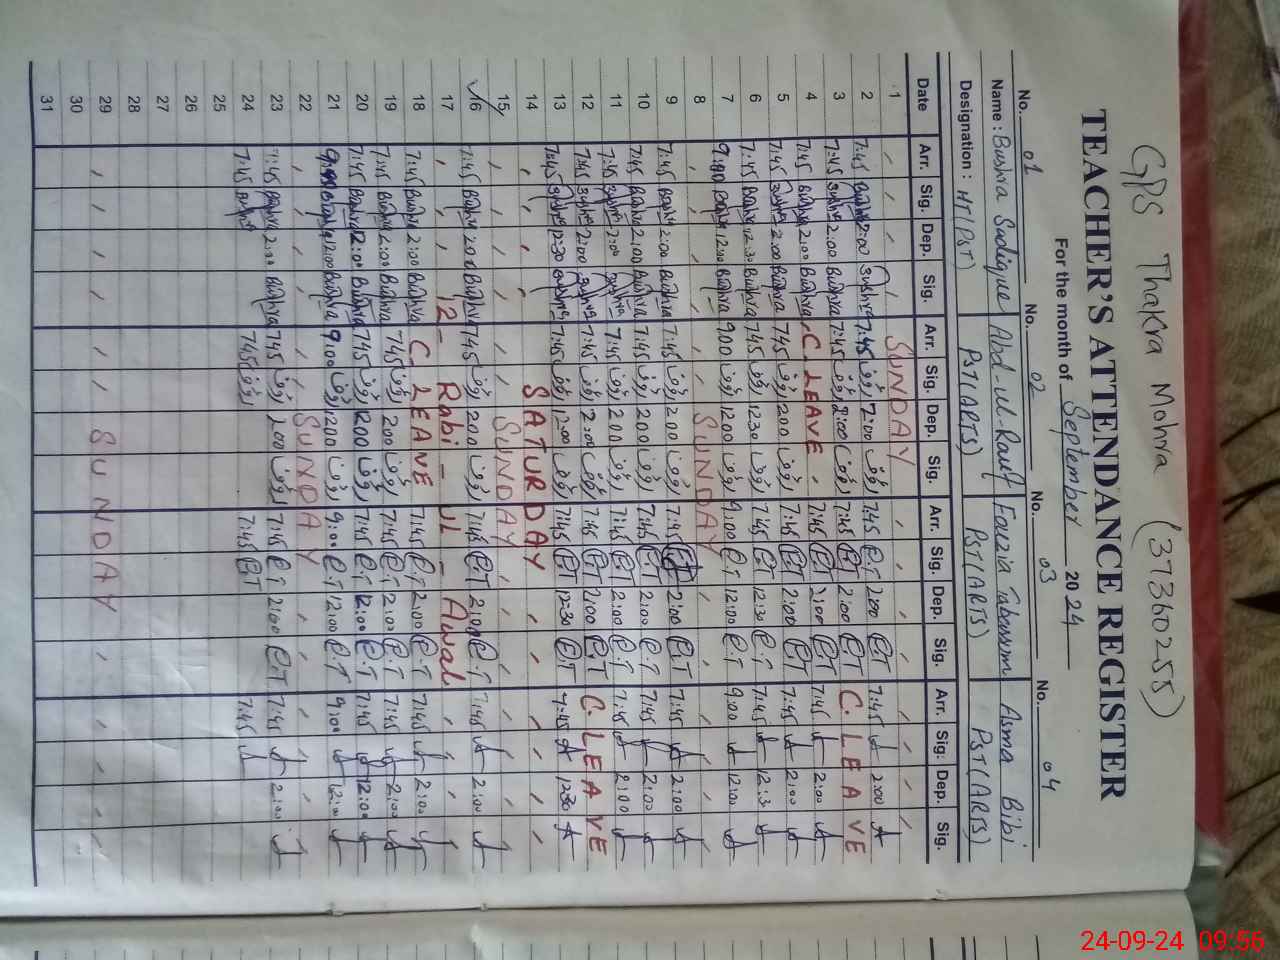 GPS Thakra Mohra (37360255)
TEACHER'S ATTENDANCE REGISTER
For the month of September 2024
No. 01 No. 02 No. 03 No. 04
Name : Bushra Sadique Abd-ul-Rauf Fauzia Tabassum Asma Bibi
Designation : HT(PST) PST(ARTS) PST(ARTS) PST(ARTS)
Date Arr. Sig. Dep. Sig. Arr. Sig. Dep. Sig. Arr. Sig. Dep. Sig. Arr. Sig. Dep. Sig.
1 SUNDAY
2 7:45 Bushra 2:00 Bushra 7:45 2:00 7:45 F.T 2:00 F.T 7:45 2:00
3 7:45 Bushra 2:00 Bushra 7:45 2:00 7:45 F.T 2:00 F.T C. LEAVE
4 7:45 Bushra 2:00 Bushra C. LEAVE 7:45 F.T 2:00 F.T 7:45 2:00
5 7:45 Bushra 2:00 Bushra 7:45 2:00 7:45 F.T 2:00 F.T 7:45 2:00
6 7:45 Bushra 12:30 Bushra 7:45 12:30 7:45 F.T 12:30 F.T 7:45 12:3
7 9:00 Bushra 12:00 Bushra 9:00 12:00 9:00 F.T 12:00 F.T 9:00 12:00
8 SUNDAY
9 7:45 Bushra 2:00 Bushra 7:45 2:00 7:45 F.T 2:00 F.T 7:45 2:00
10 7:45 Bushra 2:00 Bushra 7:45 2:00 7:45 F.T 2:00 F.T 7:45 2:00
11 7:45 Bushra 2:00 Bushra 7:45 2:00 7:45 F.T 2:00 F.T 7:45 2:00
12 7:45 Bushra 2:00 Bushra 7:45 2:00 7:45 F.T 2:00 F.T C. LEAVE
13 7:45 Bushra 12:30 Bushra 7:45 12:00 7:45 F.T 12:30 F.T 7:45 12:30
14 SATURDAY
15 SUNDAY
16 7:45 Bushra 2:00 Bushra 7:45 2:00 7:45 F.T 2:00 F.T 7:45 2:00
17 12 - Rabi - ul - Awal
18 7:45 Bushra 2:00 Bushra C. LEAVE 7:45 F.T 2:00 F.T 7:45 2:00
19 7:45 Bushra 2:00 Bushra 7:45 2:00 7:45 F.T 2:00 F.T 7:45 2:00
20 7:45 Bushra 12:00 Bushra 7:45 1200 7:45 F.T 12:00 F.T 7:45 12:00
21 9:00 Bushra 12:00 Bushra 9:00 1200 9:00 F.T 12:00 F.T 9:00 12:00
22 SUNDAY
23 7:45 Bushra 2:00 Bushra 7:45 2:00 7:45 F.T 2:00 F.T 7:45 2:00
24 7:45 Bushra 7:45 7:45 F.T 7:45
25
26
27
28
29 SUNDAY
30
31
24-09-24 09:56